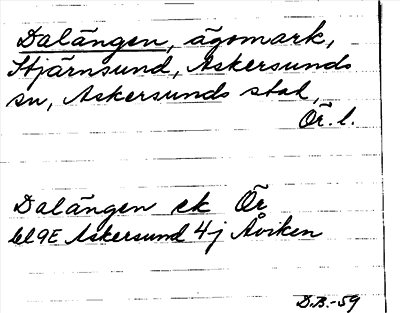 Dalängen, ägomark,
Stjärnsund, Askersunds
sn, Askersunds stad,
Ör. l.
Dalängen ek Ör
bl 9E Askersund 4j Åviken
D.B.-59